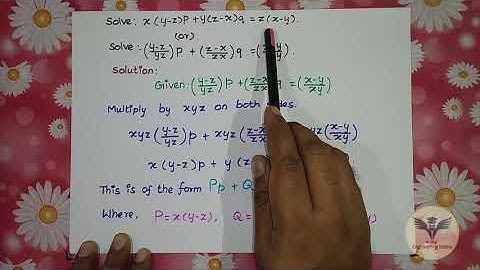 Solve: x(y-z)p + y(z-x)q = z(x-y).
(or)
Solve: (y-z/yz)p + (z-x/zx)q = (
Solution:
Given: (y-z/yz)p + (z-x/zx)q = (x-y/xy)
Multiply by xyz on both
xyz(y-z/yz)p + xyz(z-x/ yz(x-y/xy)
x(y-z)p + y(z
This is of the form Pp + Q
Where, P = x(y-z), Q = y)